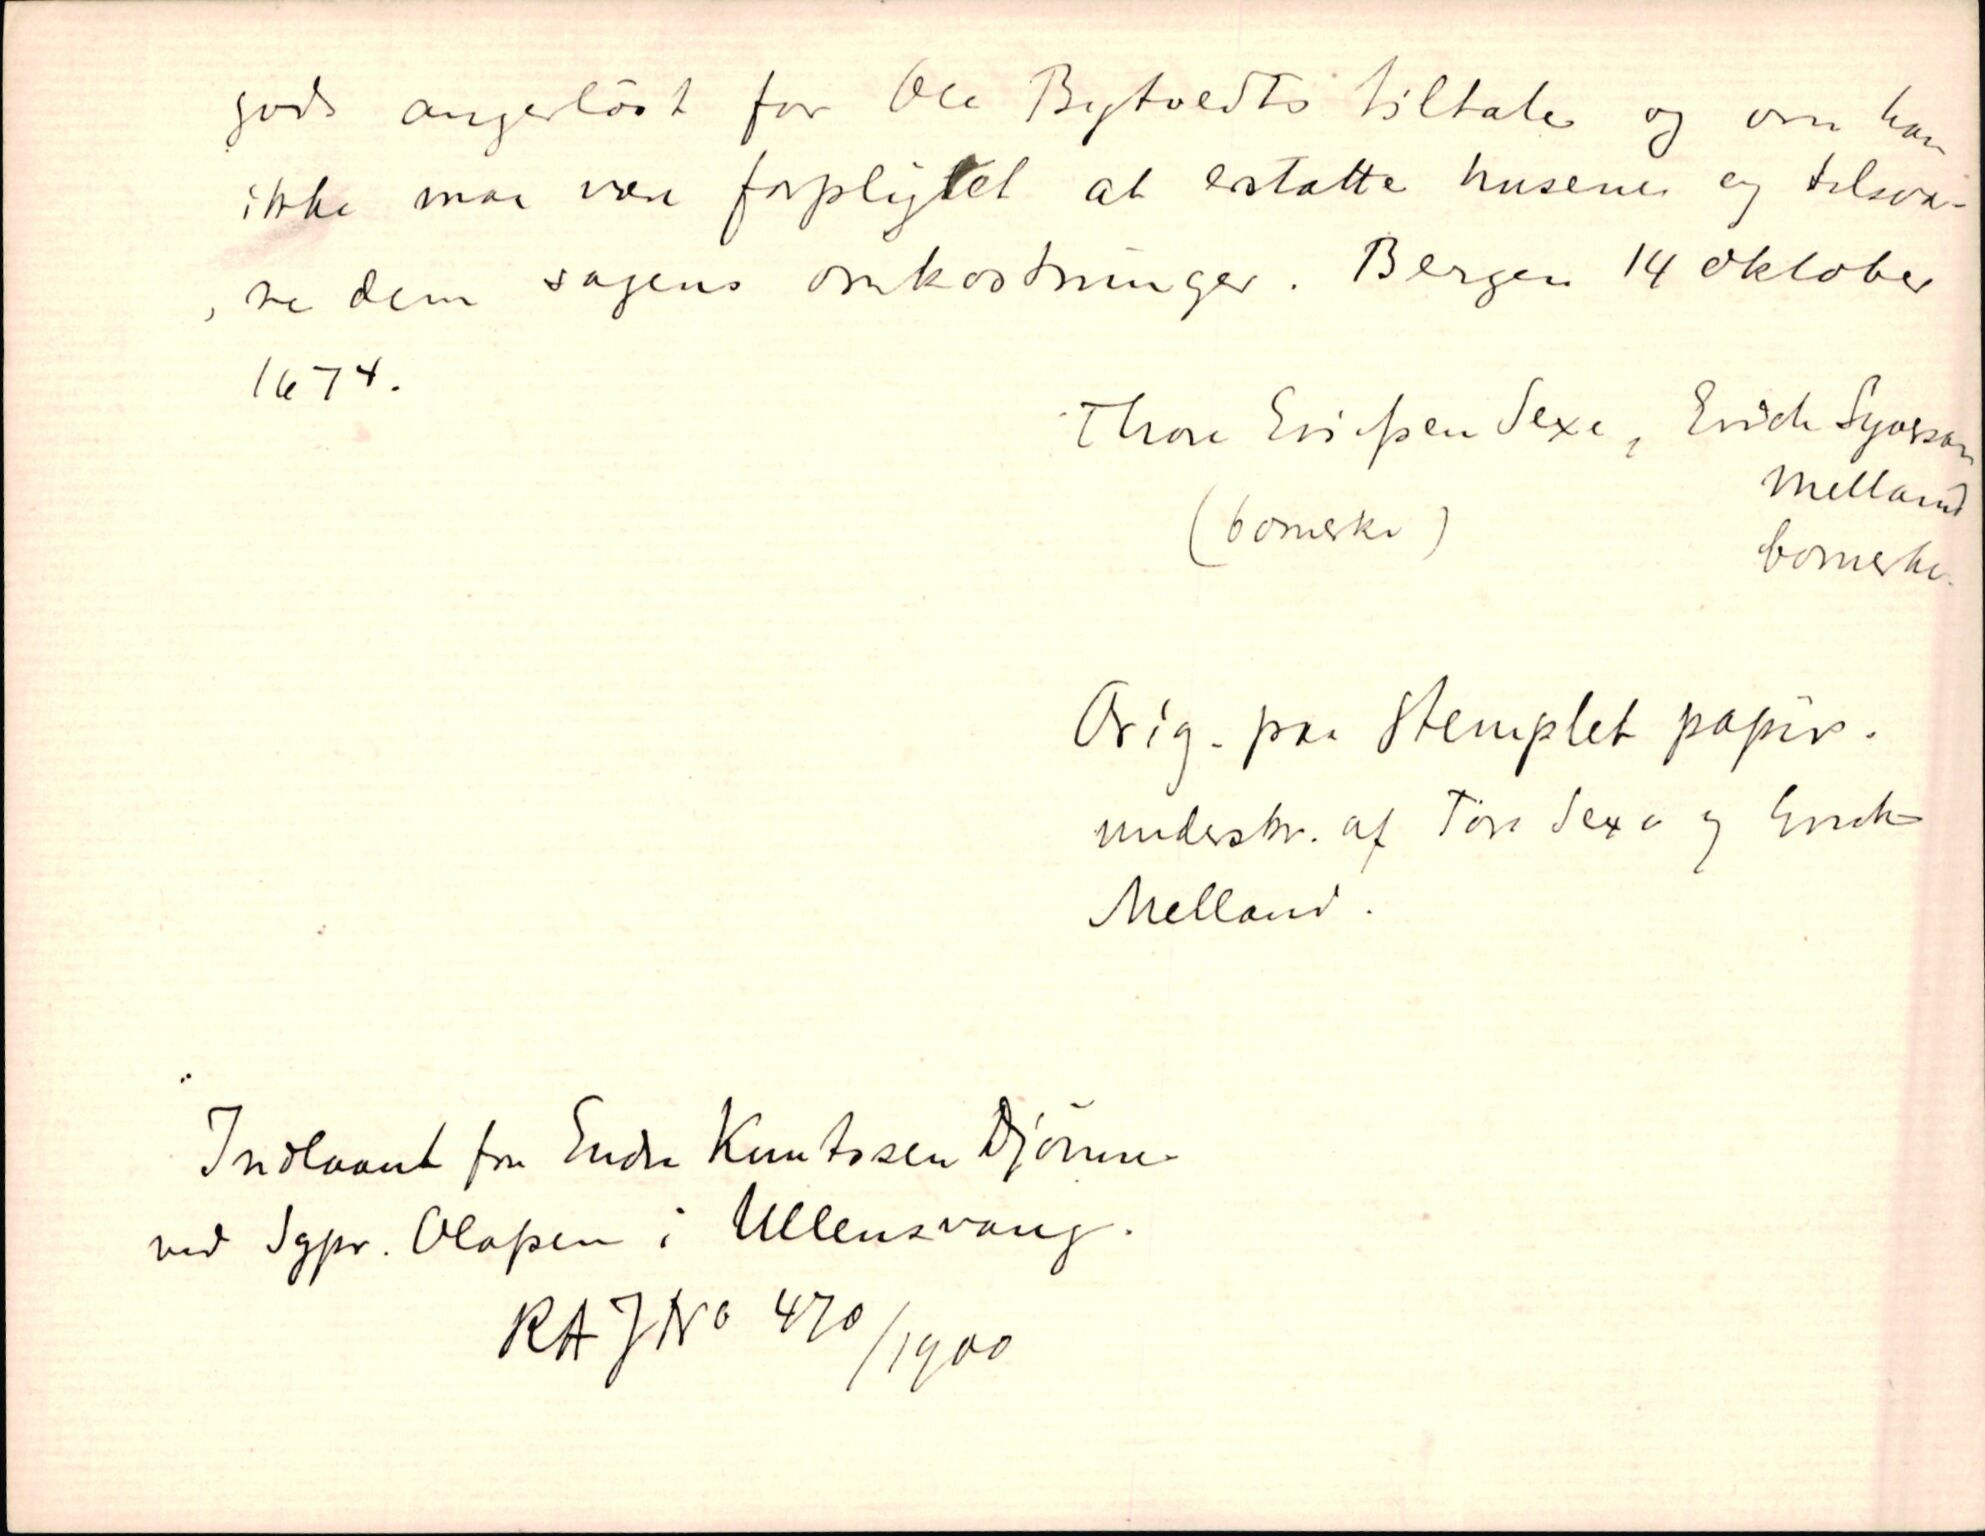 gods angerløst for Ole Bytvedts tiltale og om han
ikke maa være forpligtet at erstatte husene og tilsva-
re dem sagens omkostninger. Bergen 14 oktober
1674.
Thore Erichsen Sexe, Erich Syverson
Melland
(bomerke)
bomerke.
Orig. paa stemplet papir.
underskr. af Tore Sexe og Erich
Melland.
Indlaant fra Endre Knutssen Djønne
ved Sgpr. Olafsen i Ullensvang.
RA J No 470/1900